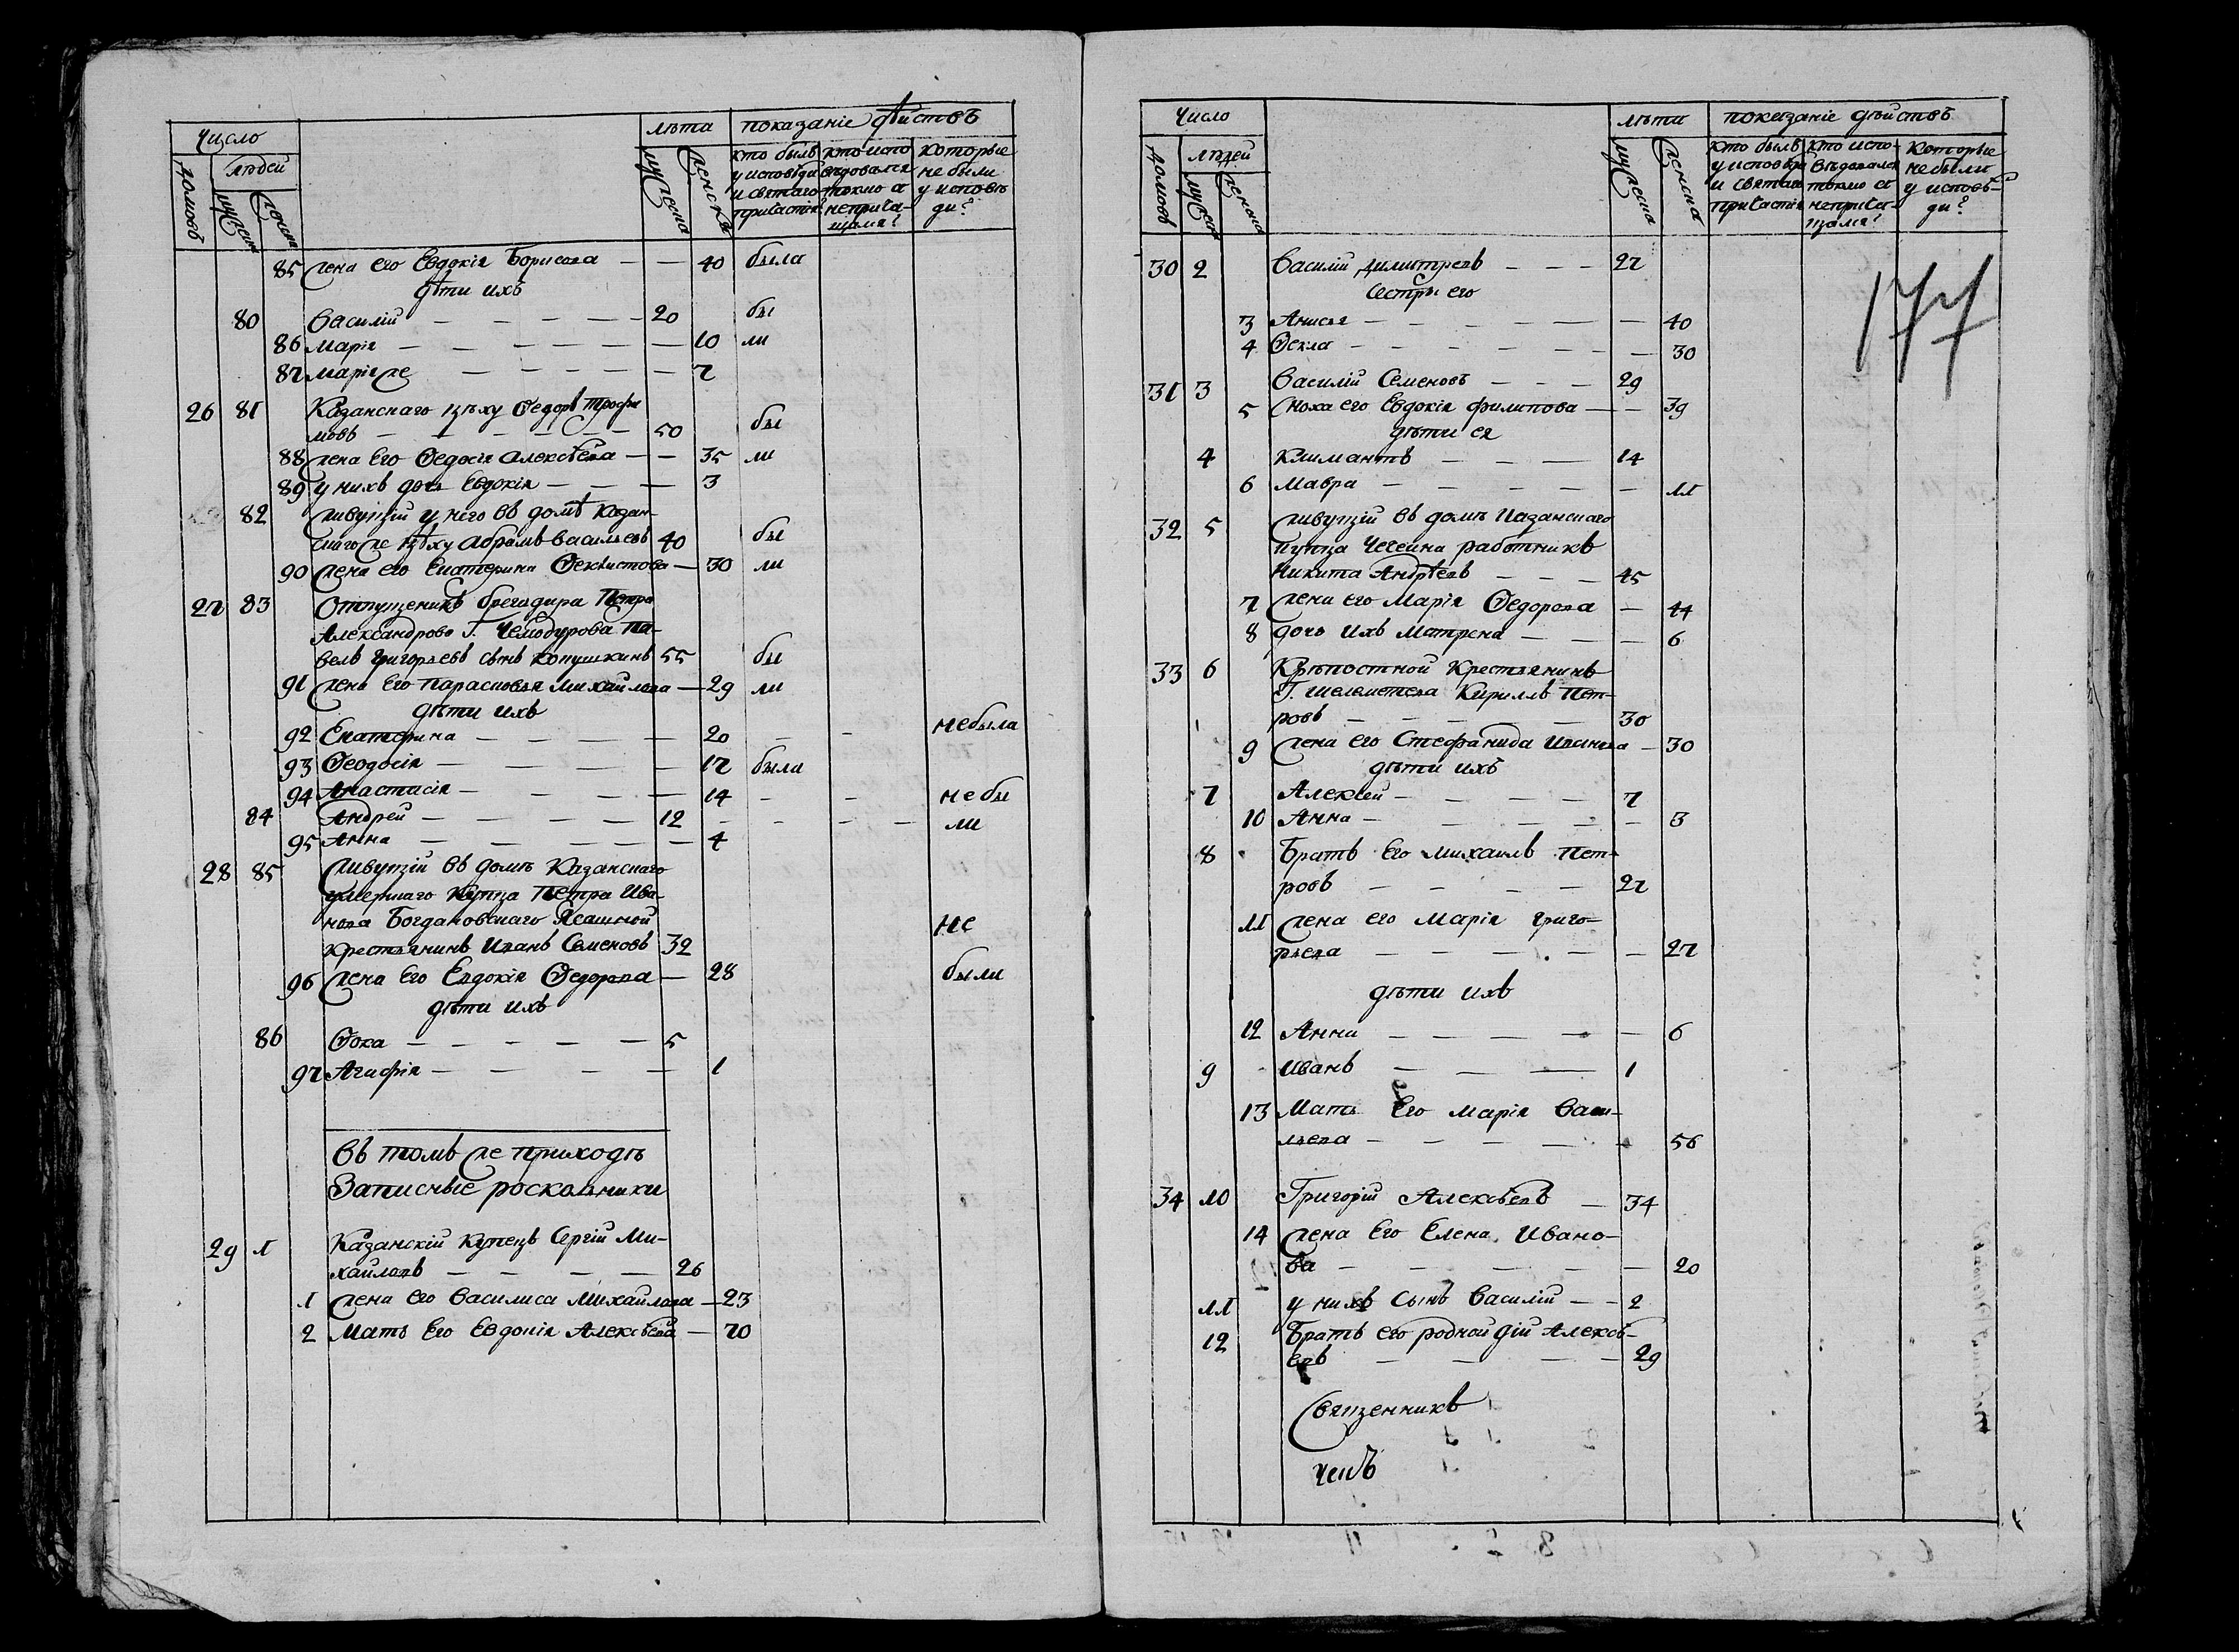 число лѣта показаніе дѣйствъ
домовъ людей мужеска женска мужеска женска кто былъ у исповѣди и святаго причастія? кто исповѣдовался токмо а непричащался? которые небыли у исповѣди?
85 жена его Евдокія Борисова — — 40 была
дѣти ихъ
80 Василій — — — — — 20 бы
86 Марія — — — — — — 10 ли
87 Марія же — — — — — 7
26 81 Казанскаго цѣху Ѳедоръ Трофи
мовъ — — — — — — 50 бы
88 жена его Ѳедосія Алексѣева — — 35 ли
89 у нихъ дочь Евдокія — — — 3
82 живущій у него въ домѣ казан-
скаго же цѣху Абрамъ Васильевъ 40 бы
90 жена его Екатерина Ѳеклистова — 30 ли
27 83 Отпущеникъ брегадира Петра
Александрова Г. Чемодурова Па-
велъ Григорьевъ сынъ Копушкинъ 55 бы
91 жена его Парасковья Михайлова — 29 ли
дѣти ихъ
92 Екатерина — — — — — 20 — — небыла
93 Ѳеодосія — — — — — 17 была
94 Анастасія — — — — — 14 — — небы
84 Андрей — — — — 12 — — — — ли
95 Анна — — — — — — 4
28 85 живущій въ домѣ Казанскаго
умершаго купца Петра Ива-
нова Богдановскаго Ясашной не
крестьянинъ Иванъ Семеновъ 32
96 жена его Евдокія Ѳедорова — 28 были
дѣти ихъ
86 Ѳока — — — — — 5
97 Агафія — — — — — 1
Въ томъ же приходѣ
Записные роскольники
29 1 Казанскій купецъ Сергій Ми-
хайловъ — — — — 26
1 жена его Василиса Михайлова — 23
2 Мать его Евдокія Алексѣева — 70
число лѣта показаніе дѣйствъ
домовъ людей мужеска женска мужеска женска кто былъ у исповѣди и святаго причастія кто исповѣдовался токмо а непричащался? которые небыли у исповѣди?
177
30 2 Василій Димитревъ — — — 27
сестры его
3 Анисья — — — — — — — 40
4 Ѳекла — — — — — — — 30
31 3 Василій Семеновъ — — — 29
5 сноха его Евдокія Филипова — — 39
дѣти ея
4 Климантъ — — — 14
6 Мавра — — — — — — 11
32 5 живущій въ домѣ Казанскаго
купца Чечеина работникъ
Никита Андрѣевъ — — — 45
7 жена его Марія Ѳедорова — 44
8 дочь ихъ Матрена — — — 6
33 6 Крѣпостной крестьянинъ
Г. Шелеметева Кирилъ Пет-
ровъ — — — — 30
9 жена его Стефанида Иванова — 30
дѣти ихъ
7 Алексей — — — — 7
10 Анна — — — — — 3
8 Братъ его Михаилъ Пет-
ровъ — — — — 27
11 жена его Марія Григо-
рьева — — — — — — 27
дѣти ихъ
12 Анна — — — — — — 6
9 Иванъ — — — 1
13 Мать его Марія Васи-
льева — — — — — 56
34 10 Григорій Алексѣевъ — 34
14 жена его Елена Ивано-
ва — — — — — — 20
11 у нихъ сынъ Василій — — 2
12 Братъ его родной Алексѣ-
евъ — — — — 29
Священникъ